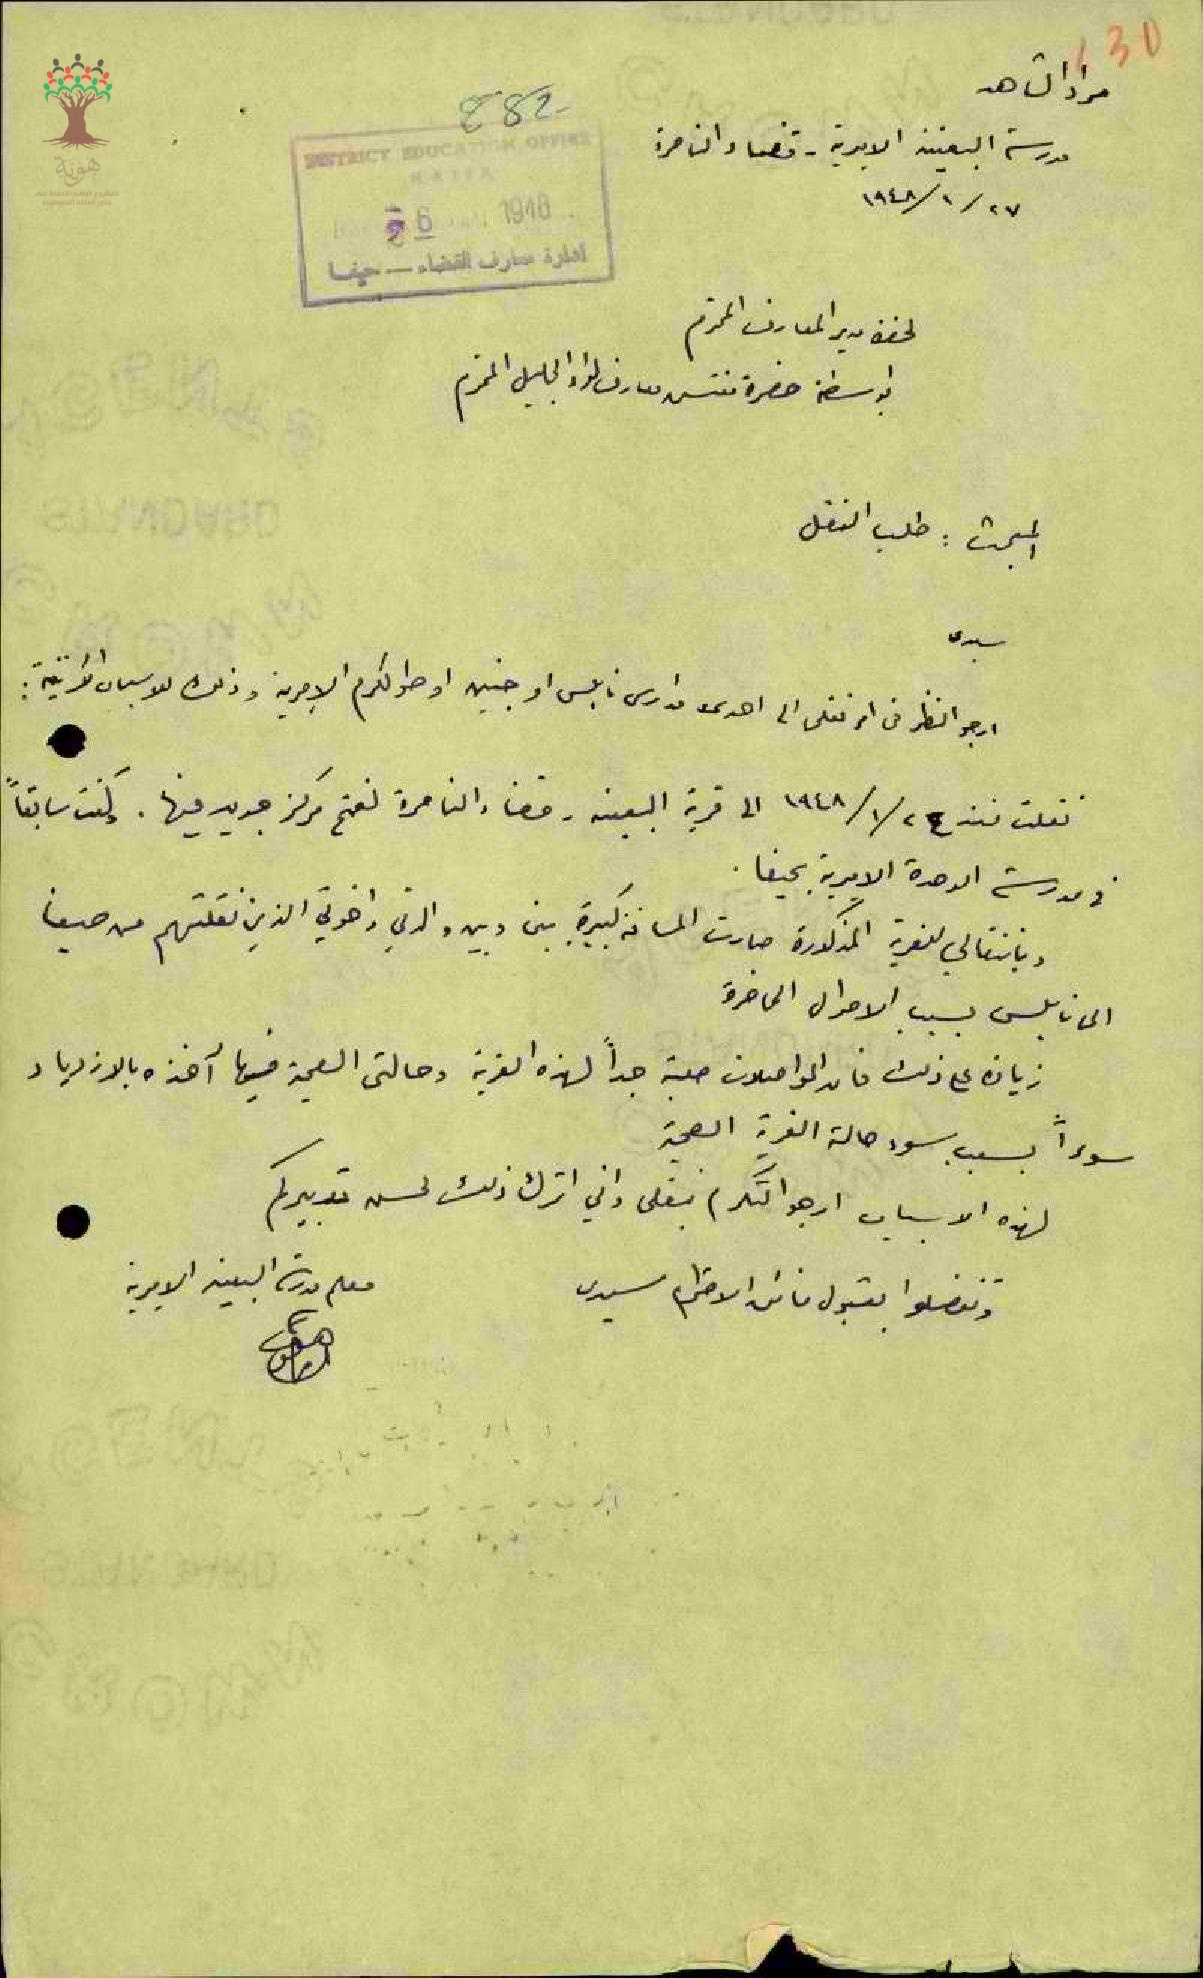 130
مراد الشاهد
882
مدرسة البعينة الاميرية - قضاء الناصرة
٢٧/ ١ /١٩٤٨
DISTRICT EDUCATION OFFICE
HAIFA
6 1948
ادارة معارف القضاء — حيفا
هوية
لحضرة مدير المعارف المحترم
بواسطة حضرة مفتش معارف لواء الجليل المحترم
المبحث : طلب النقل
سيدي
ارجو النظر في امر نقلي الى احدى مدارس نابلس او جنين او طولكرم الاميرية وذلك للاسباب الآتية :
نقلت منذ ٢٤/ ١/ ١٩٤٨ الى قرية البعينه - قضاء الناصرة لفتح مركز جديد فيها . وكنت سابقاً
في مدرسة الوحدة الاميرية بحيفا .
وبانتقالي للقرية المذكورة صارت المسافة كبيرة بيني وبين والدتي واخوتي الذين نقلتهم من حيفا
الى نابلس بسبب الاحوال الحاضرة
زيادة على ذلك فان المواصلات صعبة جداً لهذه القرية وحالتي الصحية فيها آخذه بالازدياد
سوءاً بسبب سوء حالة القرية الصحية
لهذه الاسباب ارجو التكرم بنقلي واني اترك ذلك لحسن تدبيركم
وتفضلوا بقبول فائق الاحترام سيدي
معلم مدرسة البعينه الاميرية